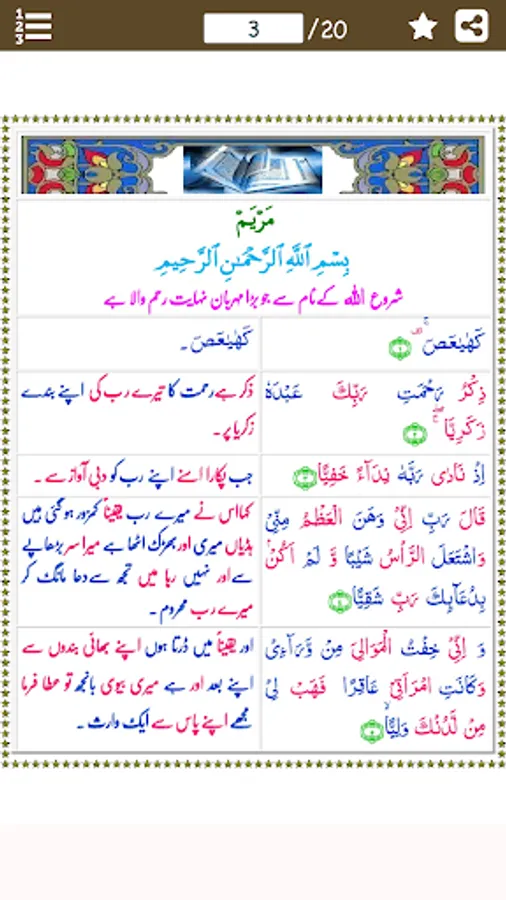 1
2
3
3 /20
مَرْيَمْ
بِسْمِ اللَّهِ الرَّحْمٰنِ الرَّحِيمِ
شروع اللہ کے نام سے جو بڑا مہربان نہایت رحم والا ہے
كۤهٰيٰعۤصۤ ۚ‏ ﴿۱﴾
کھٰیٰعص۔
ذِكْرُ رَحْمَتِ رَبِّكَ عَبْدَهٗ
زَكَرِيَّا ۖ ۚ‏ ﴿۲﴾
ذکر ہے رحمت کا تیرے رب کی اپنے بندے
زکریا پر۔
اِذْ نَادٰى رَبَّهٗ نِدَآءً خَفِيًّا ﴿۳﴾
جب پکارا اسنے اپنے رب کو دبی آواز سے ۔
قَالَ رَبِّ اِنِّىْ وَهَنَ الْعَظْمُ مِنِّىْ
وَاشْتَعَلَ الرَّاْسُ شَيْبًا وَّ لَمْ اَكُنْۢ
بِدُعَآئِكَ رَبِّ شَقِيًّا ﴿۴﴾
کہا اس نے میرے رب یقیناً کمزور ہو گئی ہیں
ہڈیاں میری اور بھڑک اٹھا ہے میرا سر بڑھاپے
سے اور نہیں رہا میں تجھ سے دعا مانگ کر
میرے رب محروم ۔
وَ اِنِّىْ خِفْتُ الْمَوَالِىَ مِنْ وَّرَآءِىْ
وَكَانَتِ امْرَاَتِىْ عَاقِرًا فَهَبْ لِىْ
مِنْ لَّدُنْكَ وَلِيًّا ۙ‏ ﴿۵﴾
اور یقیناً میں ڈرتا ہوں اپنے بھائی بندوں سے
اپنے بعد اور ہے میری بیوی بانجھ تو عطا فرما
مجھے اپنے پاس سے ایک وارث ۔